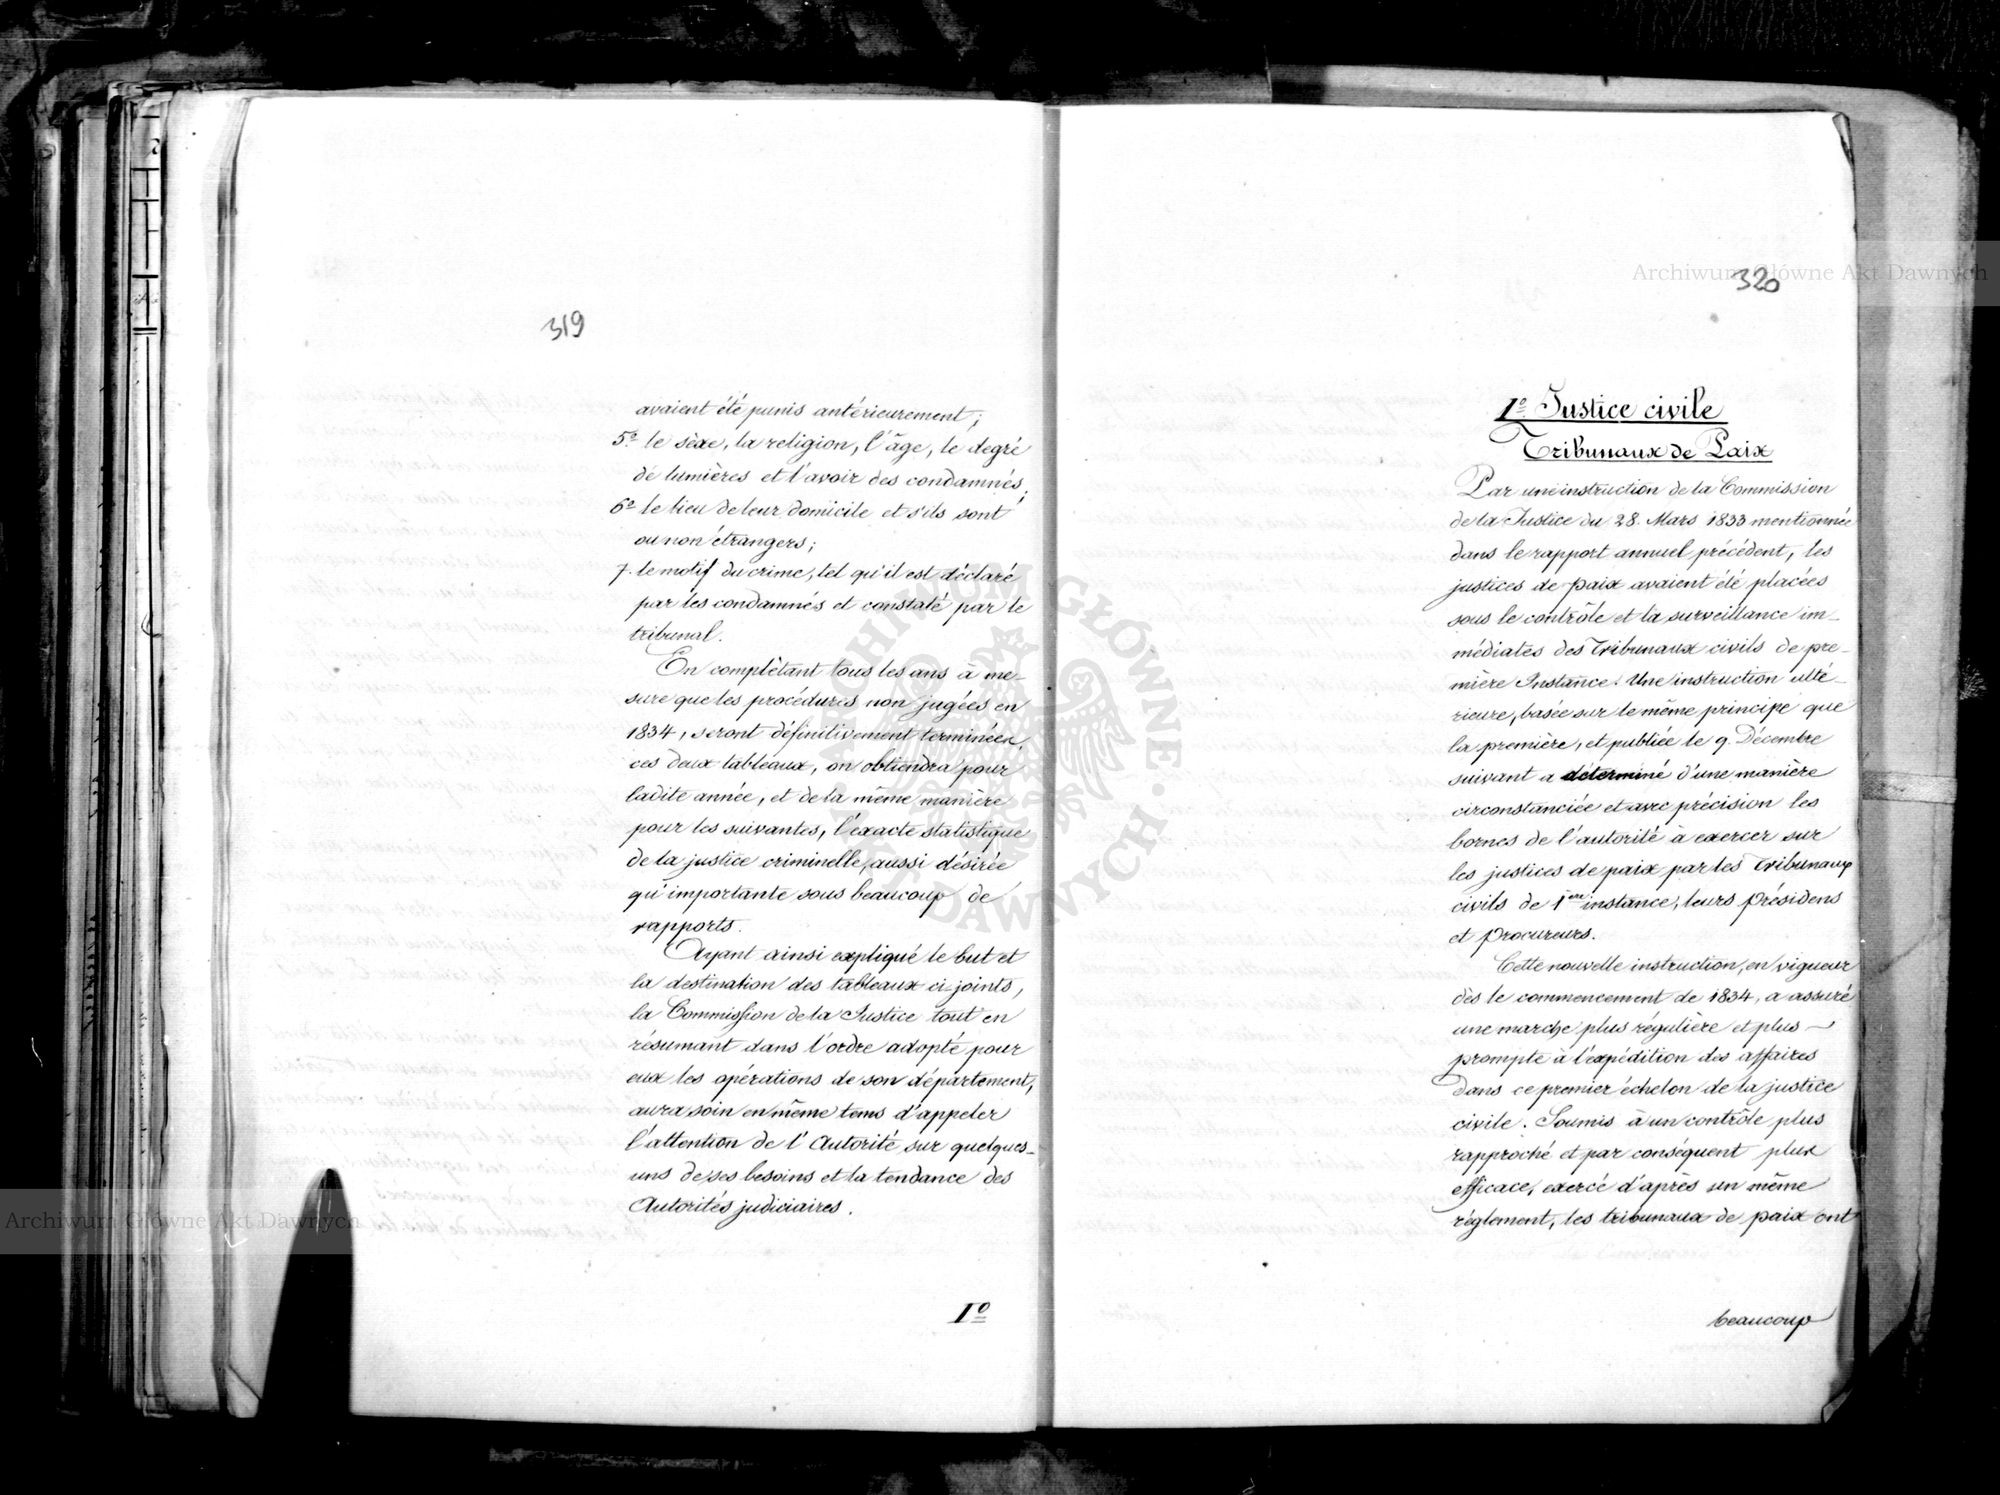 319
avaient été punis antérieurement;
5º le sèxe, la religion, l'âge, le degré
de lumières et l'avoir des condamnés;
6º le lieu de leur domicile et s'ils sont
ou non étrangers;
7. le motif du crime, tel qu'il est déclaré
par les condamnés et constaté par le
tribunal.
En complètant tous les ans à me-
sure que les procédures non jugées en
1834, seront définitivement terminées,
ces deux tableaux, on obtiendra pour
ladite année, et de la même manière
pour les suivantes, l'exacte statistique
de la justice criminelle, aussi désirée
qu'importante sous beaucoup de
rapports.
Ayant ainsi expliqué le but et
la destination des tableaux ci-joints,
la Commission de la Justice tout en
résumant dans l'ordre adopté pour
eux les opérations de son département,
aura soin en même tems d'appeler
l'attention de l'Autorité sur quelques-
uns de ses besoins et la tendance des
Autorités judiciaires.
Iº
320
Iº Justice civile
Tribunaux de Paix
Par une instruction de la Commission
de la Justice du 28. Mars 1833 mentionnée
dans le rapport annuel précédent, les
justices de paix avaient été placées
sous le contrôle et la surveillance im-
médiates des Tribunaux civils de pre-
mière Instance. Une instruction ulté-
rieure, basée sur le même principe que
la première, et publiée le 9. Décembre
suivant a déterminé d'une manière
circonstanciée et avec précision les
bornes de l'autorité à exercer sur
les justices de paix par les Tribunaux
civils de 1ère instance, leurs Présidens
et Procureurs.
Cette nouvelle instruction, en vigueur
dès le commencement de 1834, a assuré
une marche plus régulière et plus
prompte à l'expédition des affaires
dans ce premier échelon de la justice
civile. Soumis à un contrôle plus
rapproché et par conséquent plus
efficace, exercé d'après un même
règlement, les tribunaux de paix ont
beaucoup
Archiwum Główne Akt Dawnych
Archiwum Główne Akt Dawnych
ARCHIWUM GŁÓWNE AKT DAWNYCH